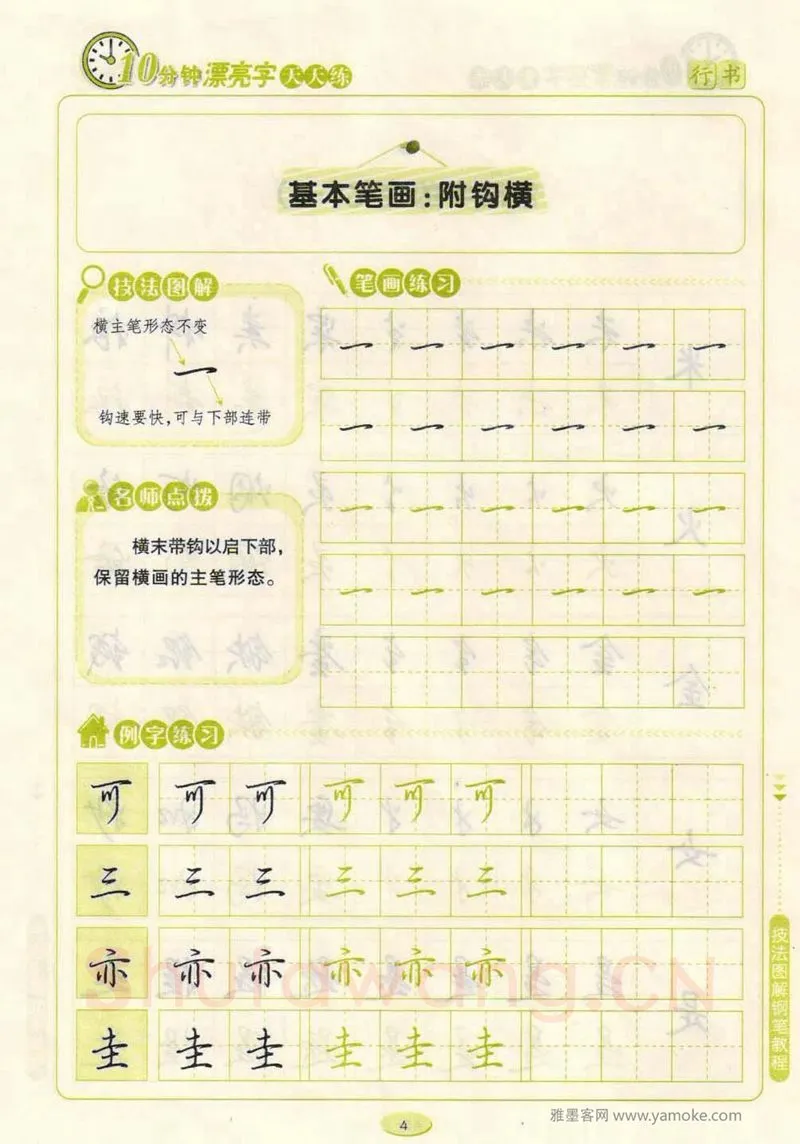 10分钟漂亮字天天练
行书
基本笔画:附钩横
技法图解
横主笔形态不变
一
钩速要快,可与下部连带
笔画练习
一 一 一 一 一 一
一 一 一 一 一 一
一 一 一 一 一 一
一 一 一 一 一 一
名师点拨
横末带钩以启下部,
保留横画的主笔形态。
例字练习
可 可 可 可 可 可
三 三 三 三 三 三
亦 亦 亦 亦 亦 亦
圭 圭 圭 圭 圭 圭
shufawang.CN
技法图解钢笔教程
4
雅墨客网 www.yamoke.com